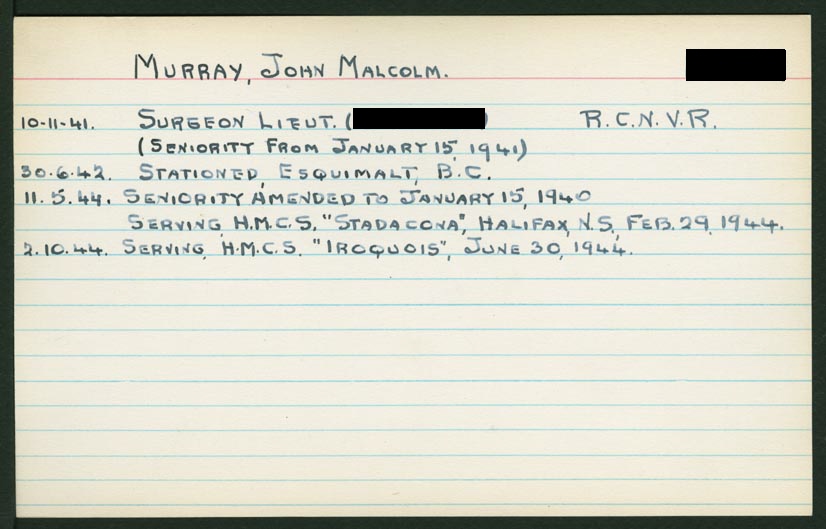 MURRAY, JOHN MALCOLM.
10-11-41. SURGEON LIEUT. ( ) R.C.N.V.R.
(SENIORITY FROM JANUARY 15, 1941)
30.6.42. STATIONED, ESQUIMALT, B.C.
11.5.44. SENIORITY AMENDED TO JANUARY 15, 1940
SERVING, H.M.C.S. "STADACONA", HALIFAX, N.S., FEB. 29, 1944.
2.10.44. SERVING, H.M.C.S. "IROQUOIS", JUNE 30, 1944.